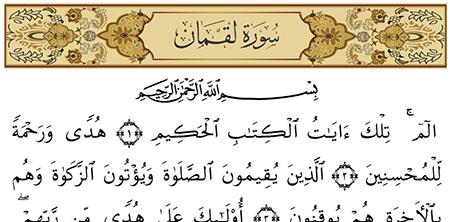 سُورَةُ لُقْمَانَ
بِسْمِ ٱللَّهِ ٱلرَّحْمَٰنِ ٱلرَّحِيمِ
الٓمٓ ۚ تِلْكَ ءَايَٰتُ ٱلْكِتَٰبِ ٱلْحَكِيمِ ﴿١﴾ هُدًى وَرَحْمَةً
لِّلْمُحْسِنِينَ ﴿٢﴾ ٱلَّذِينَ يُقِيمُونَ ٱلصَّلَوٰةَ وَيُؤْتُونَ ٱلزَّكَوٰةَ وَهُم
بِٱلْأَخِرَةِ هُمْ يُوقِنُونَ ﴿٣﴾ أُوْلَٰٓئِكَ عَلَىٰ هُدًى مِّن رَّبِّهِمْ ۖ